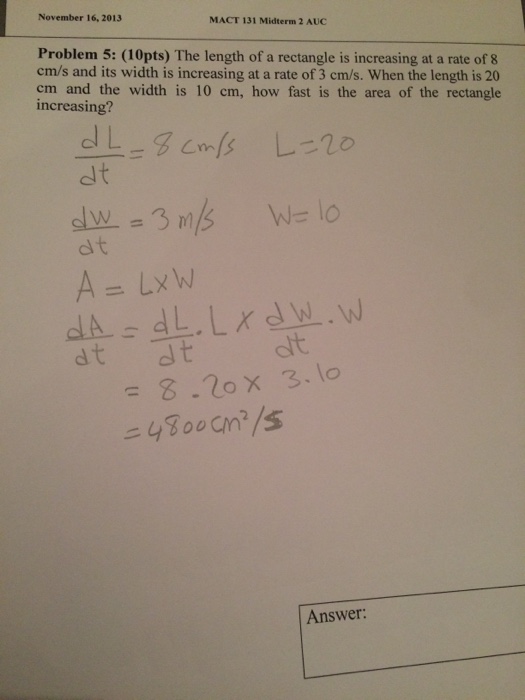 November 16, 2013 MACT 131 Midterm 2 AUC
Problem 5: (10pts) The length of a rectangle is increasing at a rate of 8
cm/s and its width is increasing at a rate of 3 cm/s. When the length is 20
cm and the width is 10 cm, how fast is the area of the rectangle
increasing?
dL/dt = 8 cm/s L=20
dw/dt = 3 m/s W=10
A = LxW
dA/dt = dL/dt . L x dW/dt . W
= 8 . 20 x 3.10
= 4800 cm²/s
Answer: